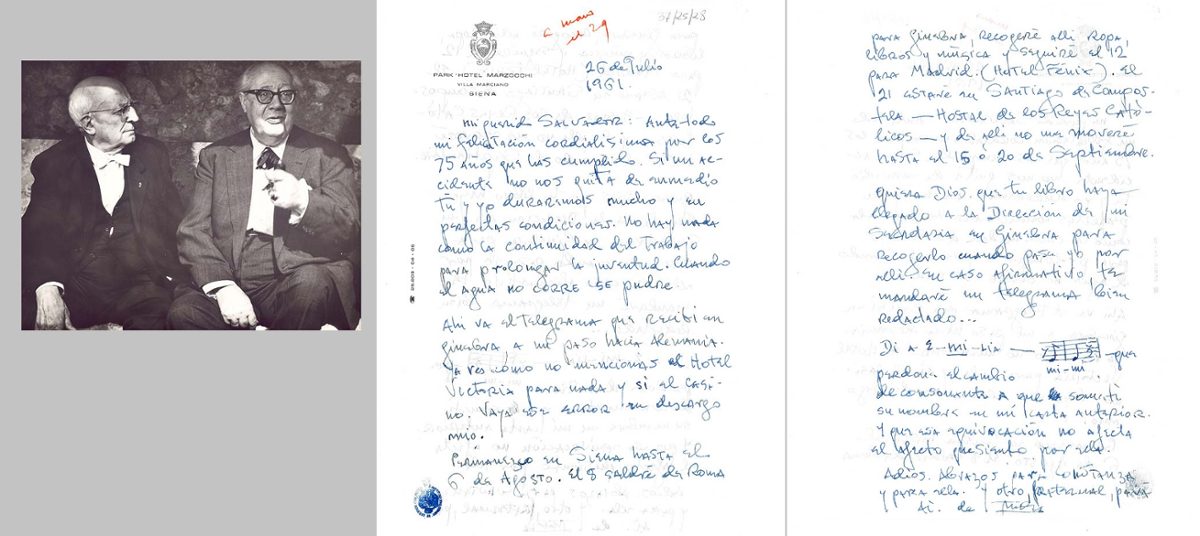 PARK HOTEL MARZOCCHI
VILLA MARCIANO
SIENA
26 de Julio
1961.
mi querido SALVADOR: Ante todo
mi felicitación cordialísima por los
75 años que has cumplido. Si un ac-
cidente no nos quita de enmedio
Tú y yo duraremos mucho y en
perfectas condiciones. No hay nada
como la continuidad del Trabajo
para prolongar la juventud. Cuando
el agua no corre se pudre
Ahí va el Telegrama que recibí en
Ginebra a mi paso hacia Alemania.
Ya ves cómo no mencionas el Hotel
Victoria para nada y si el Casi-
no. Vaya ese error en descargo
mío.
Permanezco en Siena hasta el
6 de Agosto. El 8 saldré de Roma
para Ginebra, recogeré allí ropa,
libros y música y seguiré el 12
para Madrid. (Hotel Fénix). El
21 estaré en Santiago de Compos-
tela — Hostal de los Reyes Cató-
licos — y de allí no me moveré
hasta el 15 ó 20 de Septiembre.
Quiera Dios que tu libro haya
llegado a la Dirección de mi
Secretaria en Ginebra para
recogerlo cuando pase yo por
allí. En caso afirmativo te
mandaré un telegrama bien
redactado...
Di a E-mi-lia — — que
mi-mi
perdone el cambio
de consonante a que sometí
su nombre en mi carta anterior.
Y que esa equivocación no afecta
el afecto que siento por ella.
Adiós. Abrazos para Constanza
y para ella. Y otro, fraternal, para
ti. de